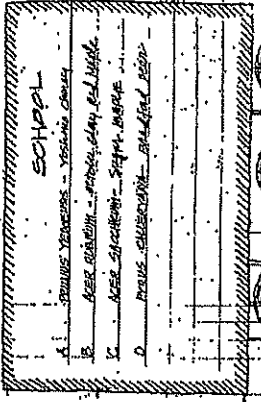 SCHOOL
A PRUNUS YEDOENSIS - YOSHINO CHERRY
B ACER RUBRUM - RED MAPLE
C ACER SACCHARUM - SUGAR MAPLE
D PYRUS CALLERYANA - BRADFORD PEAR